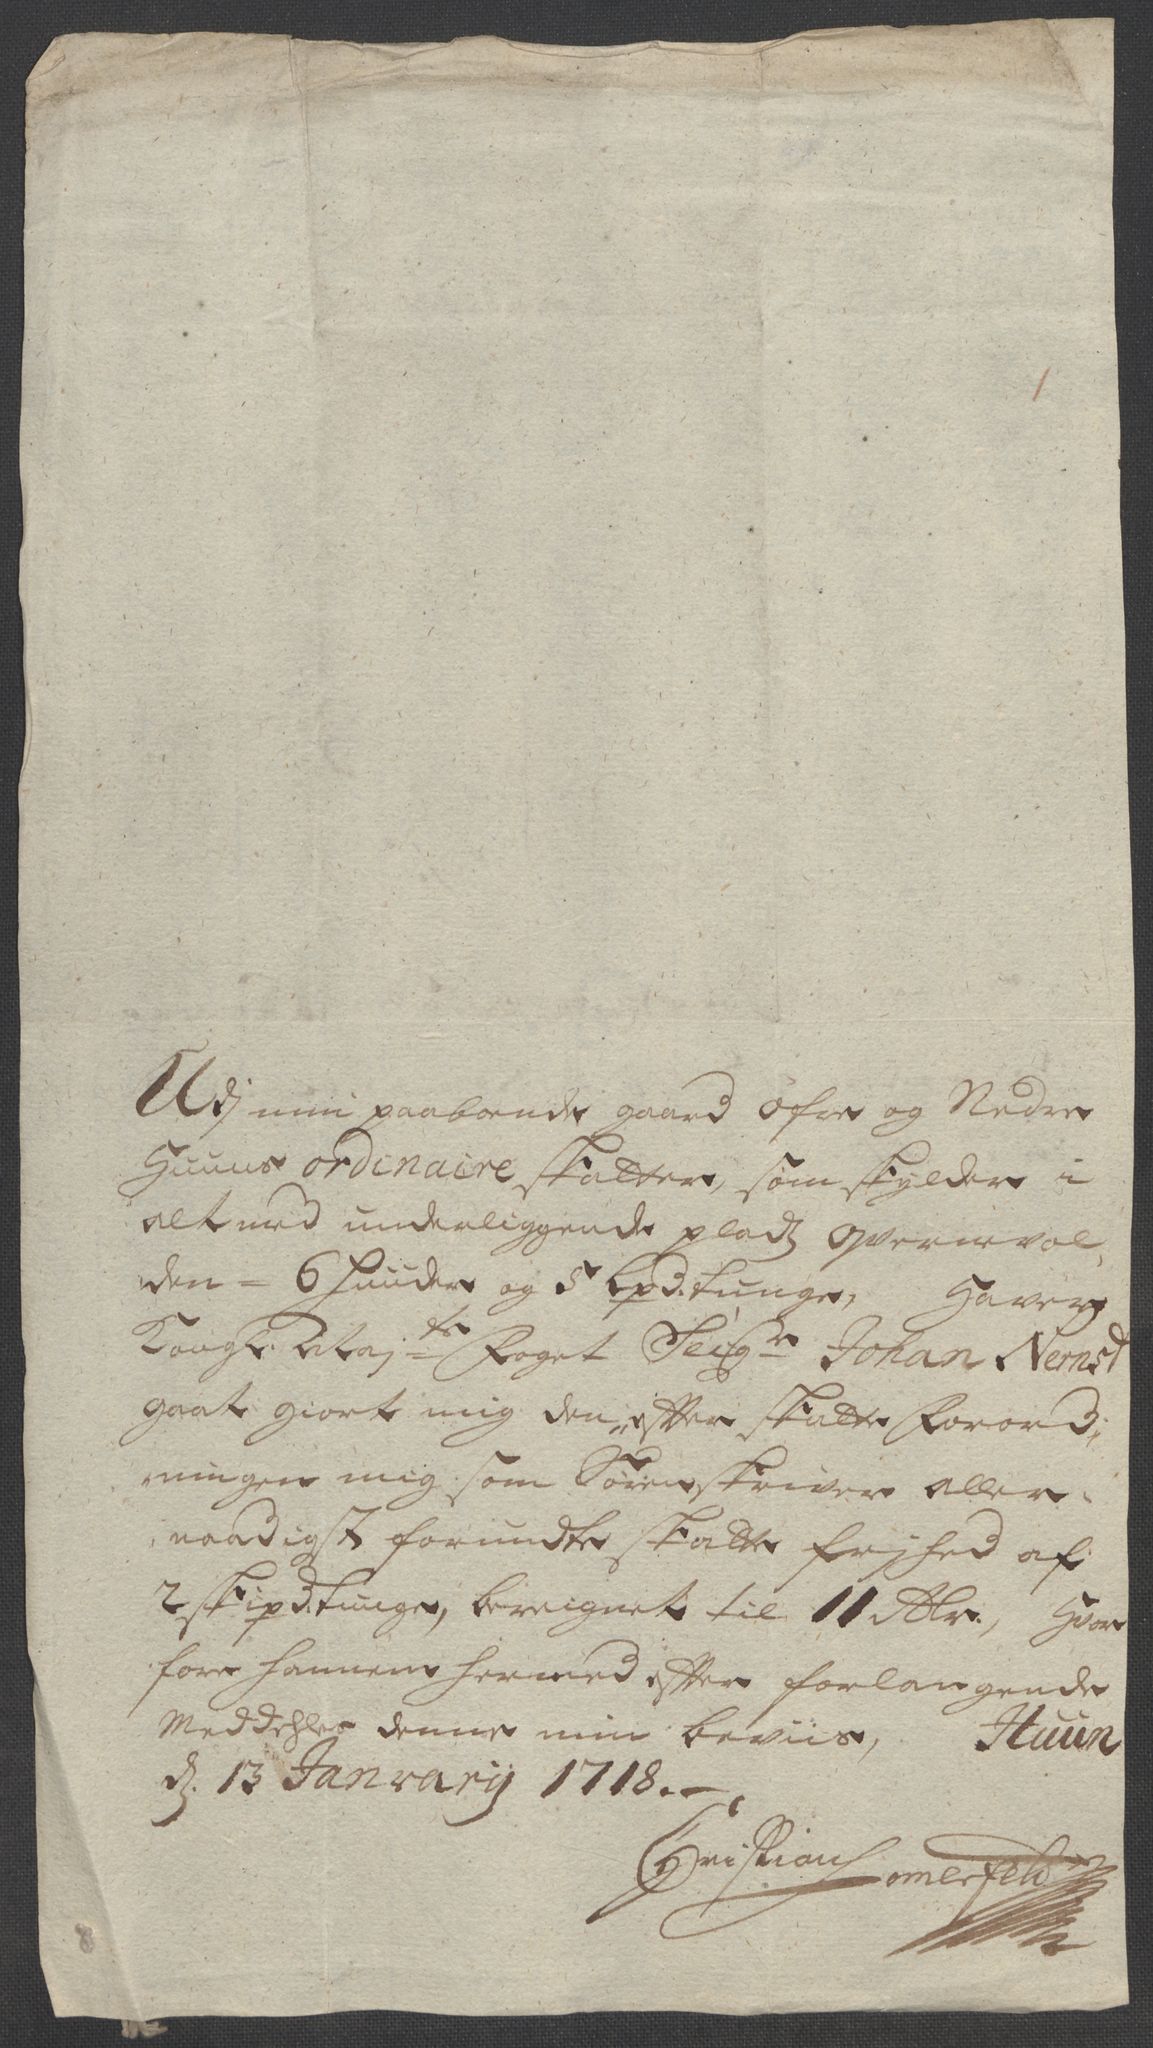 1
Udj min paaboende gaard öfre og Nedre
Huuns ordinaire skatter, som skylder i
alt med underliggende pladz
den = 6 huuder og 5 Lpd. tunge, Haver
Kongl. Maj:ts Foget Seigr. Johan Nernst
gaat giort mig den efter skatte Forord„
ningen mig som Sörenskriver aller„
naadigst forundte skatte frjhed af
2 skipd. tunge, bereignet til 11 dlr., Hvor
fore hannem hermed efter forlangende
Meddehles denne min beviis, Huun
d. 13 January 1718.
Christian Somerfeld
8